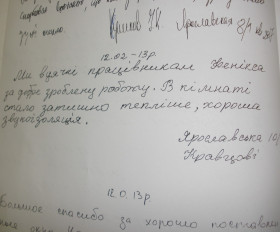 друзі
Ярославская 8/4 кв
12.02-13р.
Ми вдячні працівникам Фенікса
за добре зроблену роботу. В кімнаті
стало затишно тепліше, хороша
звукоізоляція.
Ярославська 10/
Кравцові
12.0.13р.
Большое спасибо за хорошо поставлен